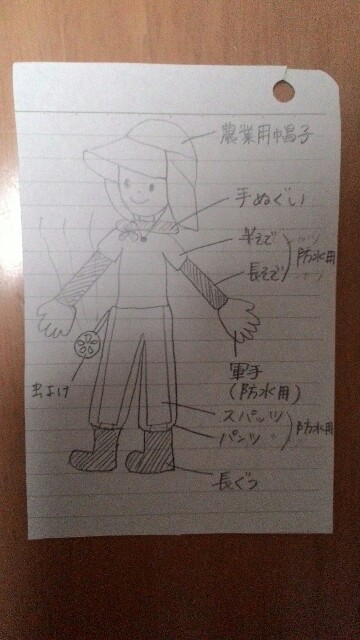 農業用帽子
手ぬぐい
半そで
長そで
防水用
軍手
(防水用)
虫よけ
スパッツ
パンツ
防水用
長ぐつ